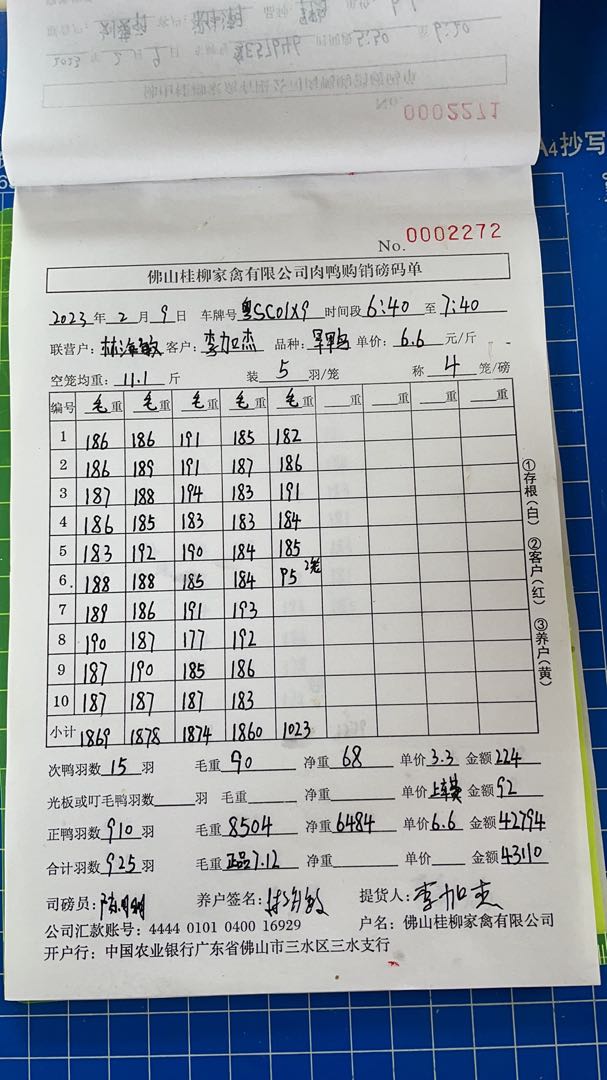 0002271
A4抄写
No. 0002272
佛山桂柳家禽有限公司肉鸭购销磅码单
2023 年 2 月 9 日 车牌号 粤SC01X9 时间段 6:40 至 7:40
联营户: 林海敏 客户: 李加杰 品种: 单价: 6.6 元/斤
空笼均重: 11.1 斤 装 5 羽/笼 称 4 笼/磅
编号 毛重 毛重 毛重 毛重 毛重 重 重 重 重
1 186 186 191 185 182
2 186 189 191 187 186
3 187 188 194 183 191
4 186 185 183 183 184
5 183 192 190 184 185
6 188 188 185 184 95 2笼
7 189 186 191 193
8 190 187 177 192
9 187 190 185 186
10 187 187 187 183
小计 1869 1878 1874 1860 1023
①存根(白) ②客户(红) ③养户(黄)
次鸭羽数 15 羽 毛重 90 净重 68 单价 3.3 金额 224
光板或叮毛鸭羽数 羽 毛重 净重 单价 金额 92
正鸭羽数 910 羽 毛重 8504 净重 6484 单价 6.6 金额 42794
合计羽数 925 羽 毛重 正品7.12 净重 单价 金额 43110
司磅员: 养户签名: 林海敏 提货人: 李加杰
公司汇款账号: 4444 0101 0400 16929 户名: 佛山桂柳家禽有限公司
开户行: 中国农业银行广东省佛山市三水区三水支行